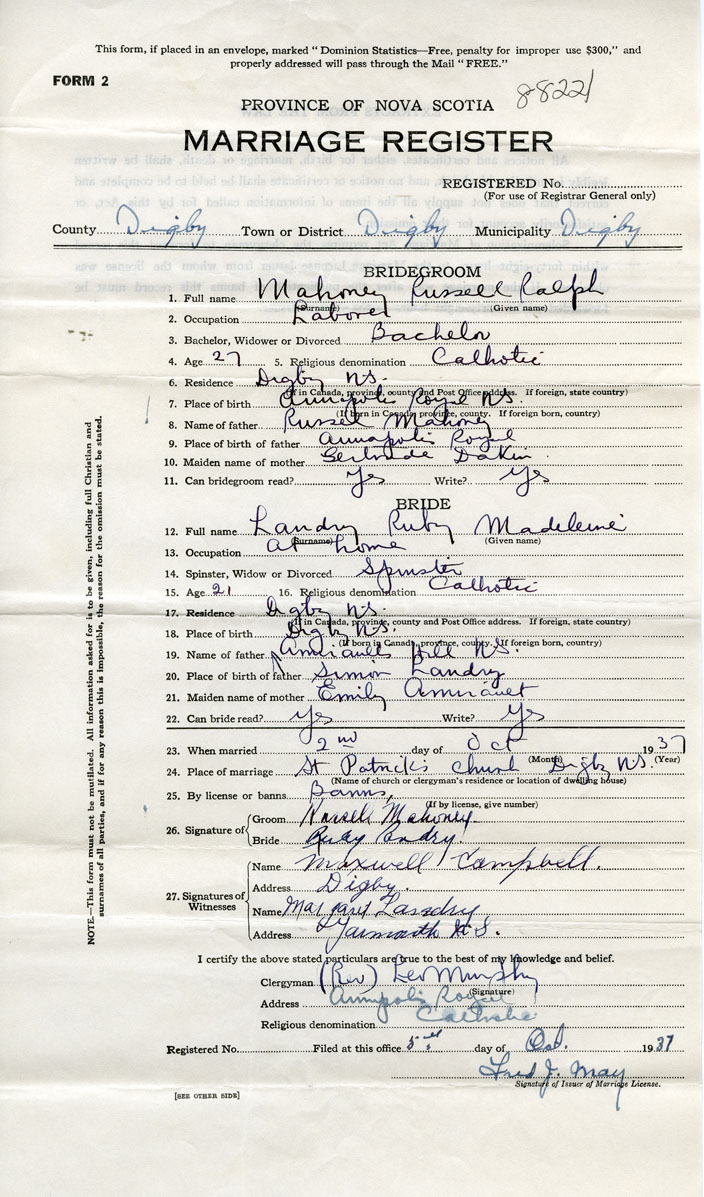 This form, if placed in an envelope, marked "Dominion Statistics—Free, penalty for improper use $300," and
properly addressed will pass through the Mail "FREE."
FORM 2
8822
PROVINCE OF NOVA SCOTIA
MARRIAGE REGISTER
REGISTERED No.
(For use of Registrar General only)
County Digby Town or District Digby Municipality Digby
BRIDEGROOM
1. Full name Mahoney Russell Ralph
(Surname) (Given name)
2. Occupation Laborer
3. Bachelor, Widower or Divorced Bachelor
4. Age 27 5. Religious denomination Catholic
6. Residence Digby N.S.
(If in Canada, province, county and Post Office address. If foreign, state country)
7. Place of birth Annapolis Royal N.S.
(If born in Canada, province, county. If foreign born, country)
8. Name of father Russell Mahoney
9. Place of birth of father Annapolis Royal
10. Maiden name of mother Gertrude Dakin
11. Can bridegroom read? Yes Write? Yes
BRIDE
12. Full name Landry Ruby Madeleine
(Surname) (Given name)
13. Occupation at home
14. Spinster, Widow or Divorced Spinster
15. Age 21 16. Religious denomination Catholic
17. Residence Digby N.S.
(If in Canada, province, county and Post Office address. If foreign, state country)
18. Place of birth Digby N.S.
(If born in Canada, province, county. If foreign born, country)
19. Name of father Amirault Hill N.S.
20. Place of birth of father Simon Landry
21. Maiden name of mother Emily Amirault
22. Can bride read? Yes Write? Yes
23. When married 2nd day of Oct 1937
(Month) (Year)
24. Place of marriage St Patrick's Church Digby N.S.
(Name of church or clergyman's residence or location of dwelling house)
25. By license or banns Banns,
(If by license, give number)
26. Signature of Groom Russell Mahoney.
Bride Ruby Landry.
27. Signatures of Witnesses
Name Maxwell Campbell.
Address Digby.
Name Margaret Landry
Address Yarmouth N.S.
I certify the above stated particulars are true to the best of my knowledge and belief.
Clergyman (Rev) Leo Murphy
(Signature)
Address Annapolis Royal
Religious denomination Catholic
Registered No. Filed at this office 5th day of Oct. 1937
Fred J. May
Signature of Issuer of Marriage License.
[SEE OTHER SIDE]
NOTE.—This form must not be mutilated. All information asked for is to be given, including full Christian and
surnames of all parties, and if for any reason this is impossible, the reason for the omission must be stated.